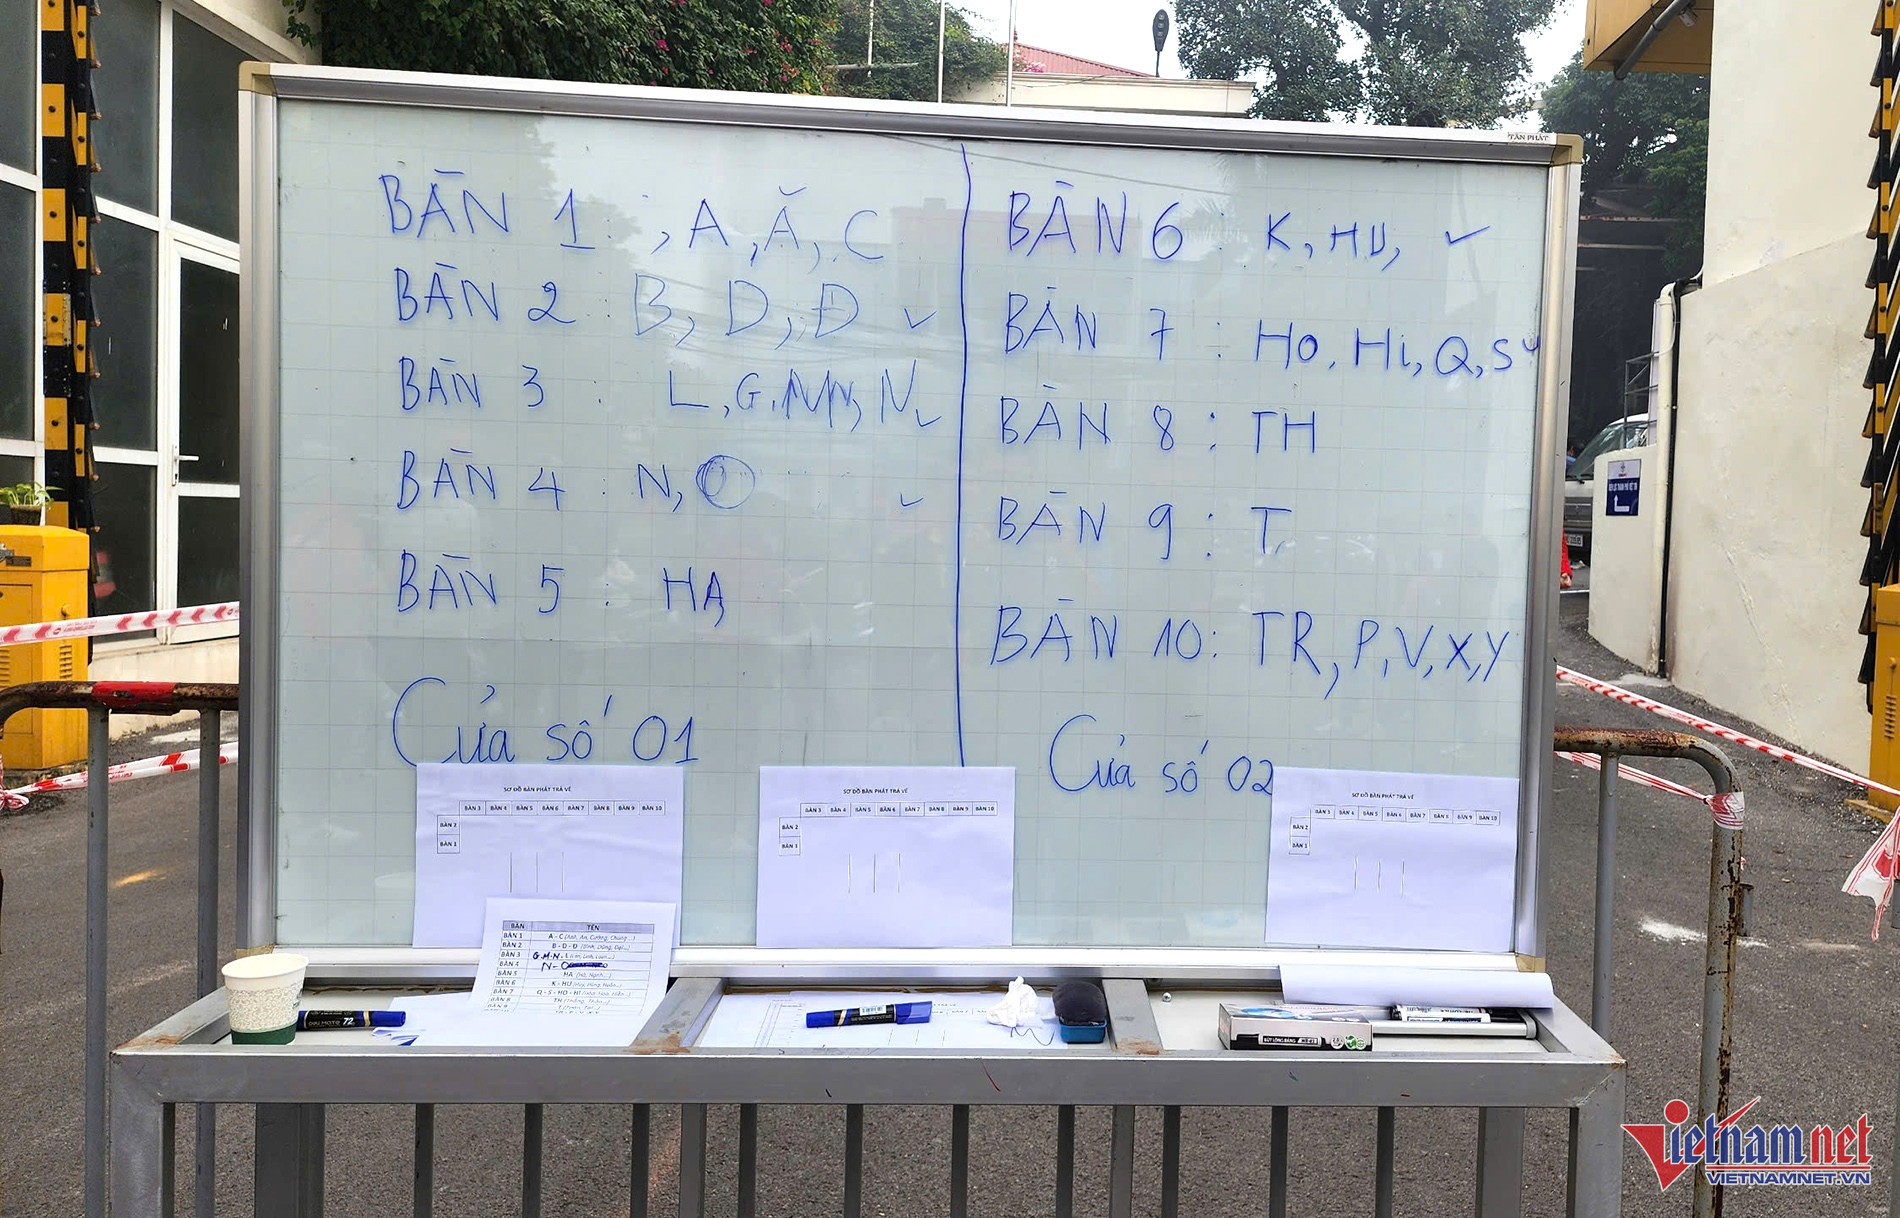 TÂN PHÁT
BÀN 1 : , A, Ă, C
BÀN 2 : B, D, Đ
BÀN 3 : L, G, M, N
BÀN 4 : N, O
BÀN 5 : HA
Cửa số 01
BÀN 6 : K, HU,
BÀN 7 : HO, Hi, Q, S
BÀN 8 : TH
BÀN 9 : T
BÀN 10 : TR, P, V, X, Y
Cửa số 02
SƠ ĐỒ BÀN PHÁT TRẢ VÉ
BÀN 3 BÀN 4 BÀN 5 BÀN 6 BÀN 7 BÀN 8 BÀN 9 BÀN 10
BÀN 2
BÀN 1
SƠ ĐỒ BÀN PHÁT TRẢ VÉ
BÀN 3 BÀN 4 BÀN 5 BÀN 6 BÀN 7 BÀN 8 BÀN 9 BÀN 10
BÀN 2
BÀN 1
SƠ ĐỒ BÀN PHÁT TRẢ VÉ
BÀN 3 BÀN 4 BÀN 5 BÀN 6 BÀN 7 BÀN 8 BÀN 9 BÀN 10
BÀN 2
BÀN 1
BÀN TÊN
BÀN 1 A - C
BÀN 2 B - D - Đ
BÀN 3 G.M.N.L
BÀN 4 N - O
BÀN 5 HA
BÀN 6 K - HU
BÀN 7 Q - S - HO - HI
BÀN 8 TH
72
BÚT LÔNG BẢNG
vietnamnet
VIETNAMNET.VN